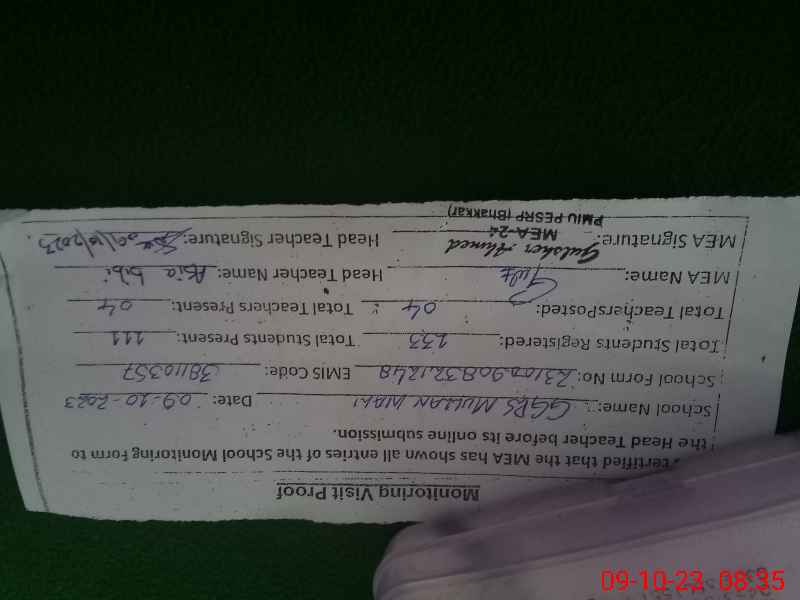 Monitoring Visit Proof
certified that the MEA has shown all entries of the School Monitoring Form to
the Head Teacher before its online submission.
School Name: GGPS MULLAN WALI Date: 09-10-2023
School Form No: EMIS Code: 38110357
Total Students Registered: 133 Total Students Present: 111
Total TeachersPosted: 04 Total Teachers Present: 04
MEA Name: Head Teacher Name: Asia bibi
MEA Signature: Gulsher Ahmed Head Teacher Signature: 09/10/2023
MEA-24
PMIU PESRP (Bhakkar)
09-10-23 08:35